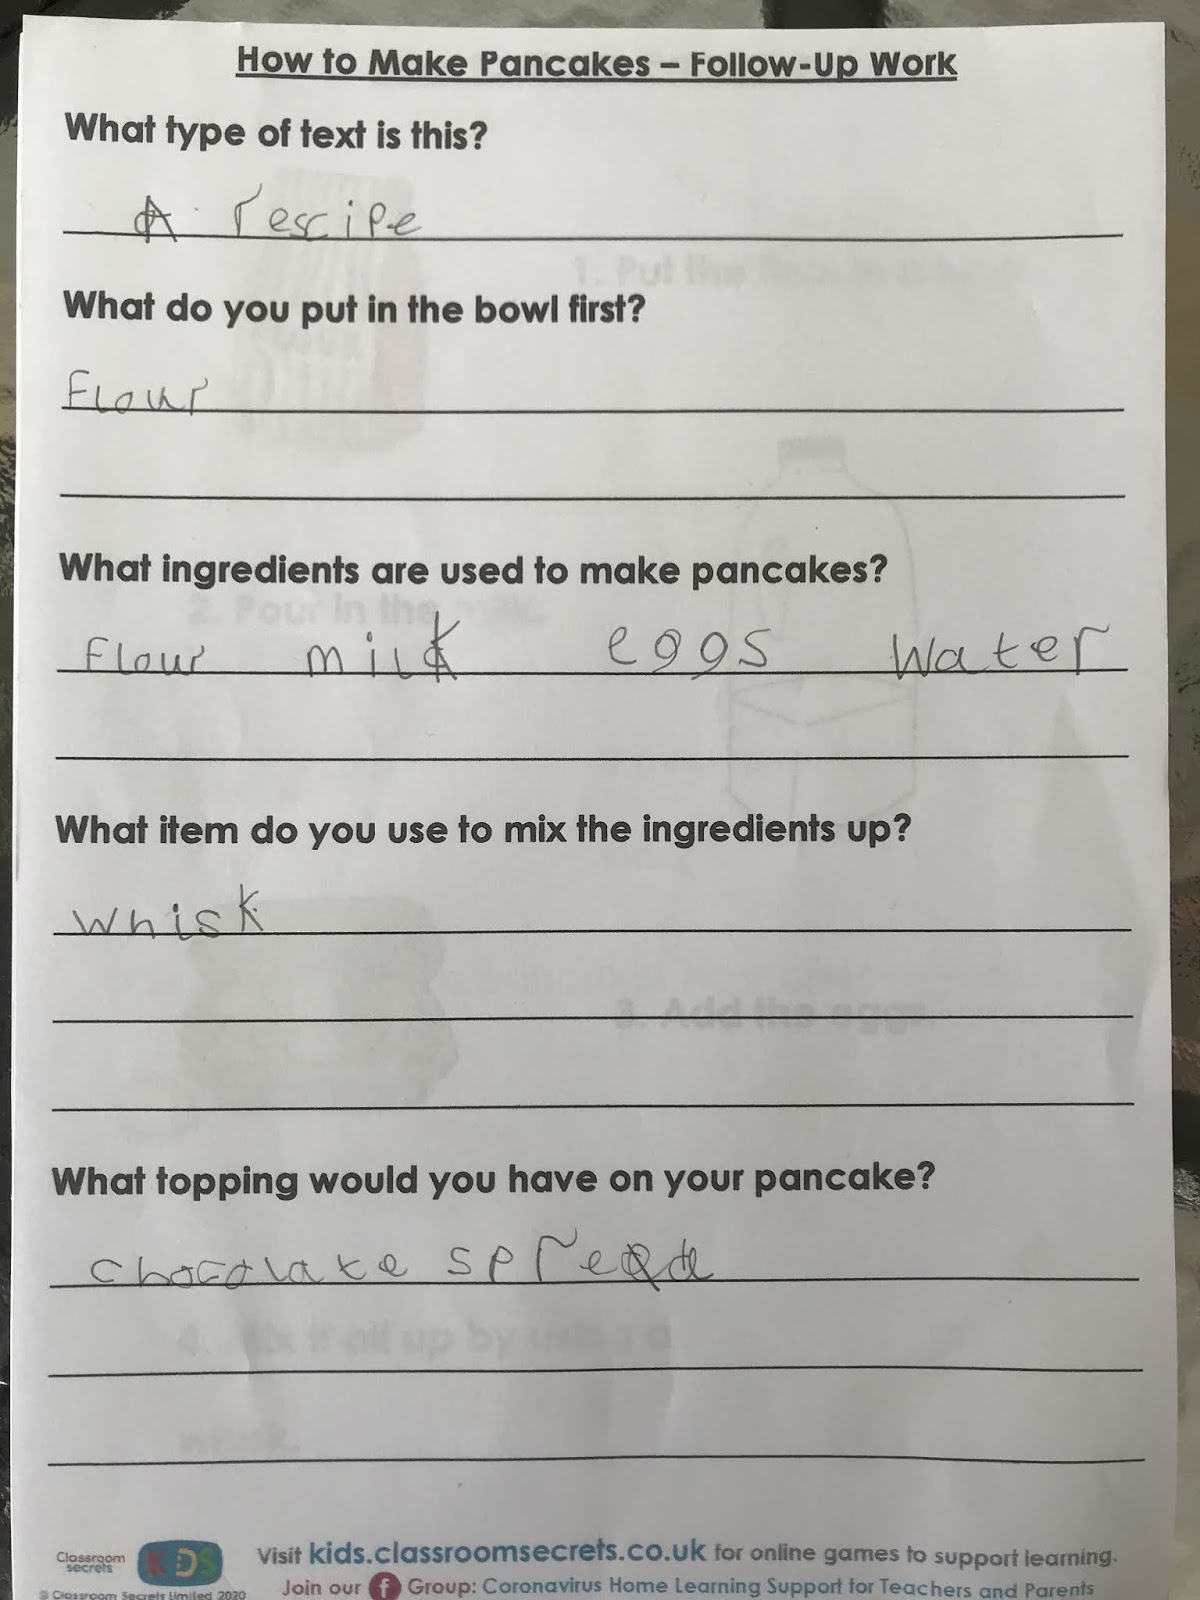 How to Make Pancakes – Follow-Up Work
What type of text is this?
A rescipe
What do you put in the bowl first?
Flour
What ingredients are used to make pancakes?
Flour milk eggs water
What item do you use to mix the ingredients up?
whisk
What topping would you have on your pancake?
chocolate spread
Classroom
secrets
KiDS
Visit kids.classroomsecrets.co.uk for online games to support learning.
© Classroom Secrets Limited 2020
Join our f Group: Coronavirus Home Learning Support for Teachers and Parents